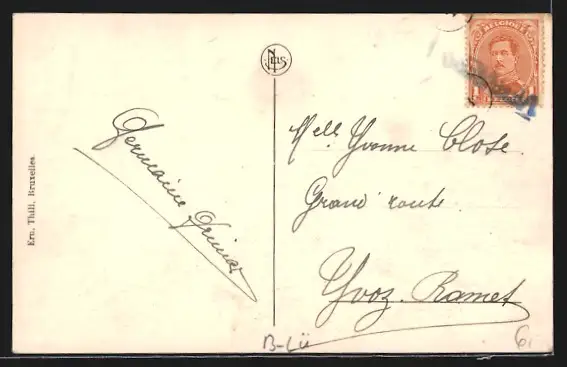 Ern. Thill, Bruxelles.
Germaine
NELS
BELGIQUE
Melle Yvonne Close.
Grand'route
Yvoz-Ramet
B-Lü
6.